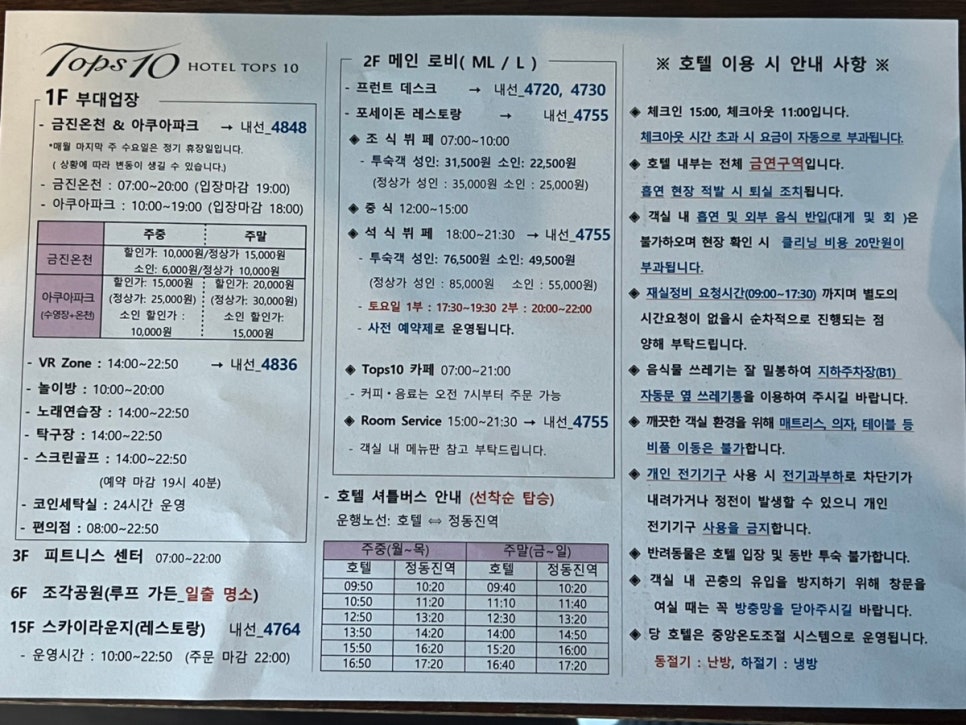 Tops 10 HOTEL TOPS 10
1F 부대업장
- 금진온천 & 아쿠아파크 → 내선_4848
*매월 마지막 주 수요일은 정기 휴장일입니다.
( 상황에 따라 변동이 생길 수 있습니다.)
- 금진온천 : 07:00~20:00 (입장마감 19:00)
- 아쿠아파크 : 10:00~19:00 (입장마감 18:00)
주중 주말
금진온천
할인가: 10,000원/정상가 15,000원
소인: 6,000원/정상가 10,000원
아쿠아파크
(수영장+온천)
할인가: 15,000원
(정상가: 25,000원)
소인 할인가 :
10,000원
할인가: 20,000원
(정상가: 30,000원)
소인 할인가:
15,000원
- VR Zone : 14:00~22:50 → 내선_4836
- 놀이방 : 10:00~20:00
- 노래연습장 : 14:00~22:50
- 탁구장 : 14:00~22:50
- 스크린골프 : 14:00~22:50
(예약 마감 19시 40분)
- 코인세탁실 : 24시간 운영
- 편의점 : 08:00~22:50
3F 피트니스 센터 07:00~22:00
6F 조각공원(루프 가든_일출 명소)
15F 스카이라운지(레스토랑) 내선_4764
- 운영시간 : 10:00~22:50 (주문 마감 22:00)
2F 메인 로비( ML / L )
- 프런트 데스크 → 내선_4720, 4730
- 포세이돈 레스토랑 → 내선_4755
◈ 조 식 뷔 페 07:00~10:00
- 투숙객 성인: 31,500원 소인: 22,500원
(정상가 성인 : 35,000원 소인 : 25,000원)
◈ 중 식 12:00~15:00
◈ 석 식 뷔 페 18:00~21:30 → 내선_4755
- 투숙객 성인: 76,500원 소인: 49,500원
(정상가 성인 : 85,000원 소인 : 55,000원)
- 토요일 1부 : 17:30~19:30 2부 : 20:00~22:00
- 사전 예약제로 운영됩니다.
◈ Tops10 카페 07:00~21:00
- 커피・음료는 오전 7시부터 주문 가능
◈ Room Service 15:00~21:30 → 내선_4755
- 객실 내 메뉴판 참고 부탁드립니다.
- 호텔 셔틀버스 안내 (선착순 탑승)
운행노선: 호텔 ⇔ 정동진역
주중(월~목) 주말(금~일)
호텔 정동진역 호텔 정동진역
09:50 10:20 09:40 10:20
10:50 11:20 11:10 11:40
12:50 13:20 12:30 13:20
13:50 14:20 14:00 14:50
15:50 16:20 15:20 16:00
16:50 17:20 16:40 17:20
※ 호텔 이용 시 안내 사항 ※
◈ 체크인 15:00, 체크아웃 11:00입니다.
체크아웃 시간 초과 시 요금이 자동으로 부과됩니다.
◈ 호텔 내부는 전체 금연구역입니다.
흡연 현장 적발 시 퇴실 조치됩니다.
◈ 객실 내 흡연 및 외부 음식 반입(대게 및 회 )은
불가하오며 현장 확인 시 클리닝 비용 20만원이
부과됩니다.
◈ 재실정비 요청시간(09:00~17:30) 까지며 별도의
시간요청이 없을시 순차적으로 진행되는 점
양해 부탁드립니다.
◈ 음식물 쓰레기는 잘 밀봉하여 지하주차장(B1)
자동문 옆 쓰레기통을 이용하여 주시길 바랍니다.
◈ 깨끗한 객실 환경을 위해 매트리스, 의자, 테이블 등
비품 이동은 불가합니다.
◈ 개인 전기기구 사용 시 전기과부하로 차단기가
내려가거나 정전이 발생할 수 있으니 개인
전기기구 사용을 금지합니다.
◈ 반려동물은 호텔 입장 및 동반 투숙 불가합니다.
◈ 객실 내 곤충의 유입을 방지하기 위해 창문을
여실 때는 꼭 방충망을 닫아주시길 바랍니다.
◈ 당 호텔은 중앙온도조절 시스템으로 운영됩니다.
동절기 : 난방, 하절기 : 냉방